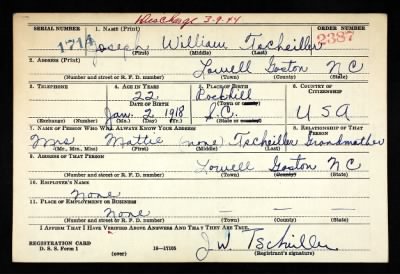 Discharge 3-9-44
SERIAL NUMBER 1. NAME (Print) ORDER NUMBER
1714 Joseph William Tscheiller 2387
(First) (Middle) (Last)
2. ADDRESS (Print)
Lowell Gaston N C
(Number and street or R. F. D. number) (Town) (County) (State)
3. TELEPHONE 4. AGE IN YEARS 5. PLACE OF BIRTH 6. COUNTRY OF CITIZENSHIP
22 Rockhill
DATE OF BIRTH (Town or county)
Jan. 2, 1918 S.C. U S A
(Exchange) (Number) (Mo.) (Day) (Yr.) (State or country)
7. NAME OF PERSON WHO WILL ALWAYS KNOW YOUR ADDRESS 8. RELATIONSHIP OF THAT PERSON
Mrs Mattie (none) Tscheiller Grandmother
(Mr., Mrs., Miss) (First) (Middle) (Last)
9. ADDRESS OF THAT PERSON
Lowell Gaston N C
(Number and street or R. F. D. number) (Town) (County) (State)
10. EMPLOYER'S NAME
None
11. PLACE OF EMPLOYMENT OR BUSINESS
None
(Number and street or R. F. D. number) (Town) (County) (State)
I AFFIRM THAT I HAVE VERIFIED ABOVE ANSWERS AND THAT THEY ARE TRUE.
REGISTRATION CARD
D. S. S. Form 1 (over) 16-17105
J. W. Tscheiller
(Registrant's signature)